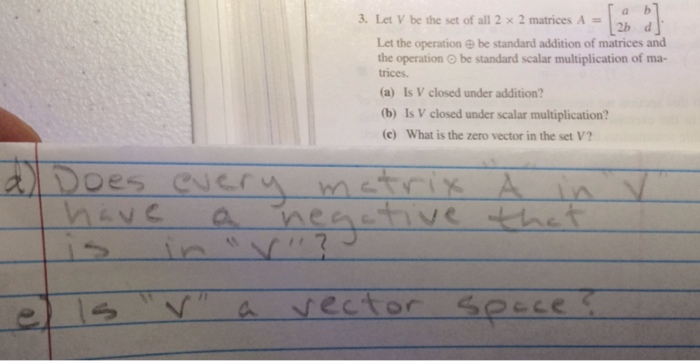 3. Let V be the set of all 2 × 2 matrices A = [a b; 2b d].
Let the operation ⊕ be standard addition of matrices and
the operation ⊙ be standard scalar multiplication of ma-
trices.
(a) Is V closed under addition?
(b) Is V closed under scalar multiplication?
(c) What is the zero vector in the set V?
d) Does every matrix "A" in "V"
have a negative that
is in "V"?
e) Is "V" a vector space?